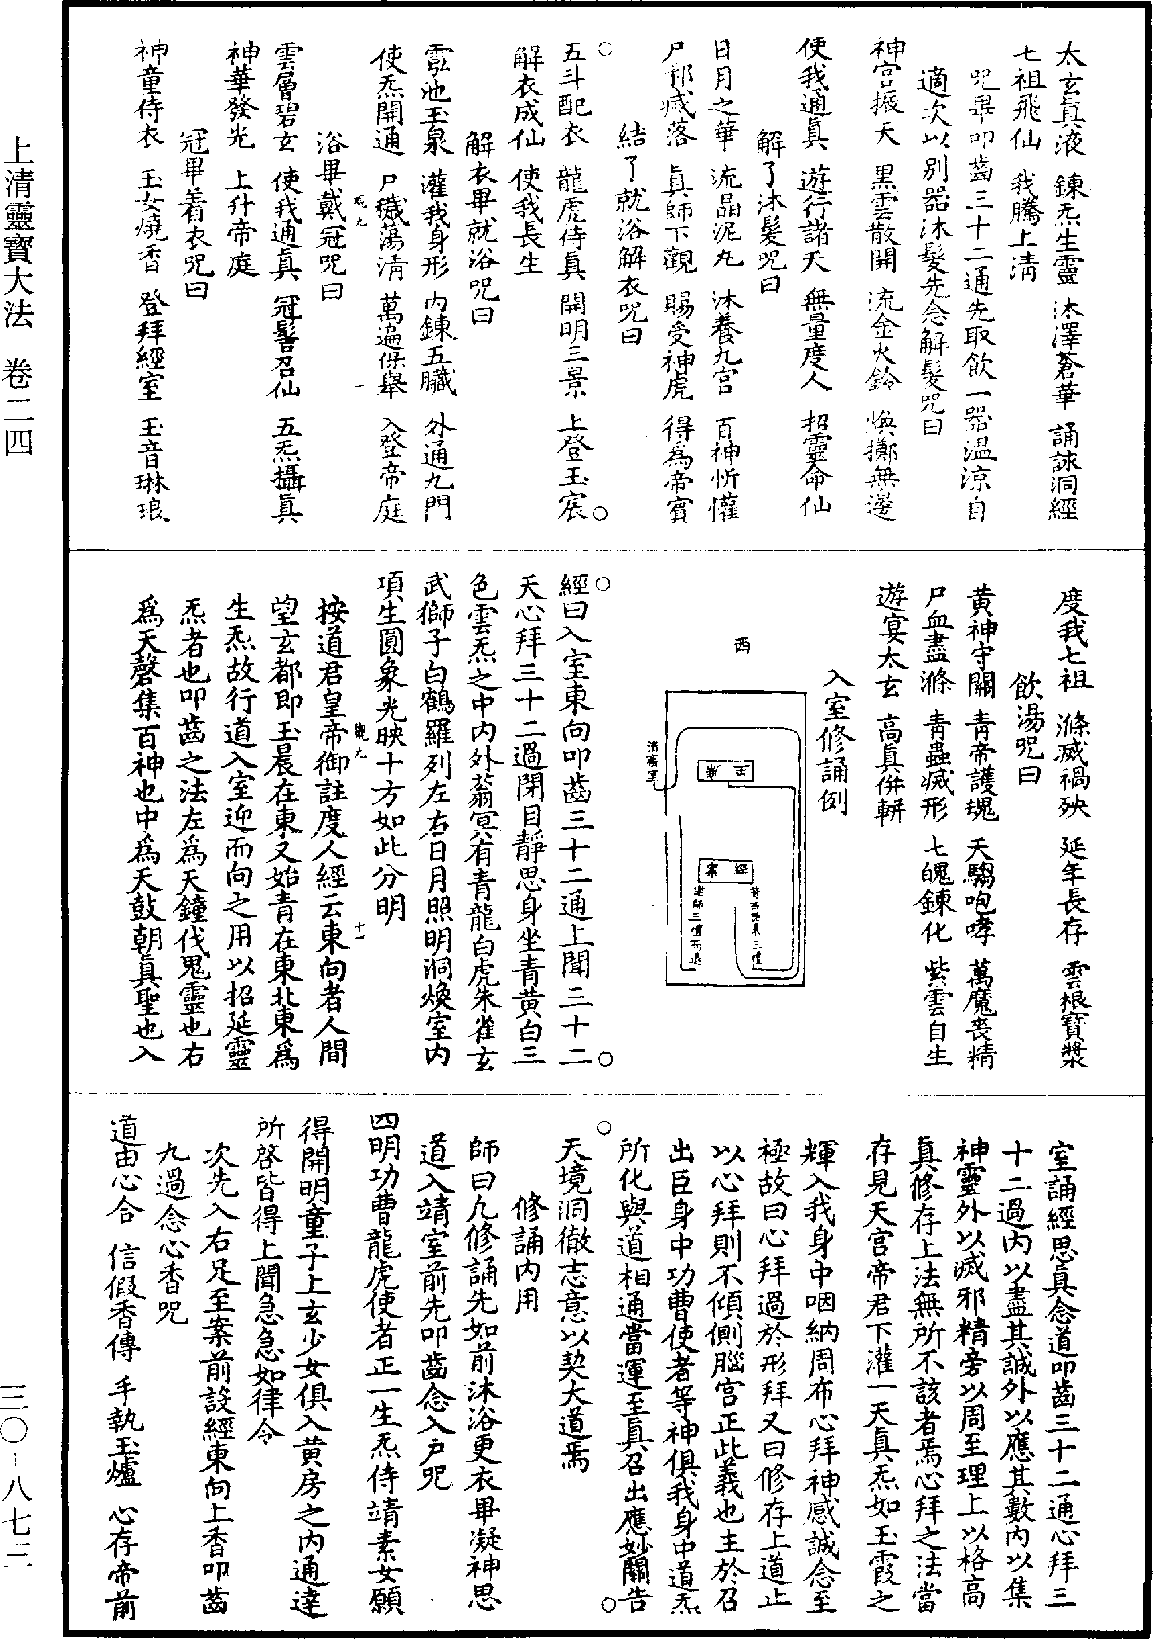 上清靈寶大法　卷二四
三〇－八七三
太玄真液　鍊炁生靈　沐澤蒼華　誦詠洞經
七祖飛仙　我騰上清
咒畢叩齒三十二通先取飲一器溫涼自
適次以別器沐髮先念解髮咒曰
神宮振天　黑雲散開　流金火鈴　煥擲無邊
使我通真　遊行諸天　無量度人　招靈命仙
解了沐髮咒曰
日月之華　流晶泥丸　沐養九宮　百神忻懽
尸郁滅落　真師下觀　賜受神虎　得為帝賓
結了就浴解衣咒曰
五斗配衣　龍虎侍真　開明三景　上登玉宸
解衣成仙　使我長生
解衣畢就浴咒曰
雲池玉泉　灌我身形　內鍊五臟　外通九門
使炁開通　尸穢蕩清　萬遍保舉　入登帝庭
浴畢戴冠咒曰
雲層碧玄　使我通真　冠髻召仙　五炁攝真
神華發光　上升帝庭
冠畢着衣咒曰
神童侍衣　玉女燒香　登拜經室　玉音琳琅
度我七祖　滌滅禍殃　延年長存　雲根寶漿
飲湯咒曰
黃神守關　青帝護魂　天騶咆哮　萬魔喪精
尸血盡滌　青蟲滅形　七魄鍊化　紫雲自生
遊宴太玄　高真併輧
入室修誦例
西
經案
經曰入室東向叩齒三十二通上聞三十二
天心拜三十二過閉目靜思身坐青黃白三
色雲炁之中內外蓊冥有青龍白虎朱雀玄
武獅子白鶴羅列左右日月照明洞煥室內
項生圓象光映十方如此分明
按道君皇帝御註度人經云東向者人間
望玄都即玉晨在東又始青在東北東為
生炁故行道入室迎而向之用以招延靈
炁者也叩齒之法左為天鐘伐鬼靈也右
為天磬集百神也中為天鼓朝真聖也入
室誦經思真念道叩齒三十二通心拜三
十二過內以盡其誠外以應其數內以集
神靈外以滅邪精旁以周至理上以格高
真修存上法無所不該者焉心拜之法當
存見天宮帝君下灌一天真炁如玉霞之
輝入我身中咽納周布心拜神感誠念至
極故曰心拜過於形拜又曰修存上道止
以心拜則不傾側腦宮正此義也主於召
出臣身中功曹使者等神俱我身中道炁
所化與道相通當運至真召出應妙關告
天境洞徹志意以契大道焉
修誦內用
師曰凡修誦先如前沐浴更衣畢凝神思
道入靖室前先叩齒念入戶咒
四明功曹龍虎使者正一生炁侍靖素女願
得開明童子上玄少女俱入黃房之內通達
所啓皆得上聞急急如律令
次先入右足至案前設經東向上香叩齒
九過念心香咒
道由心合　信假香傳　手執玉爐　心存帝前